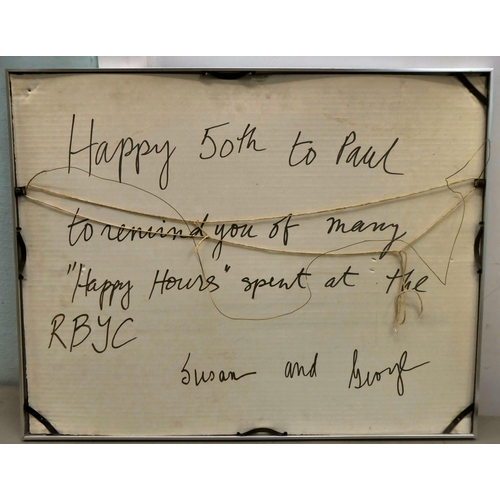 Happy 50th to Paul
to remind you of many
"Happy Hours" spent at the
RBYC
Susan and George